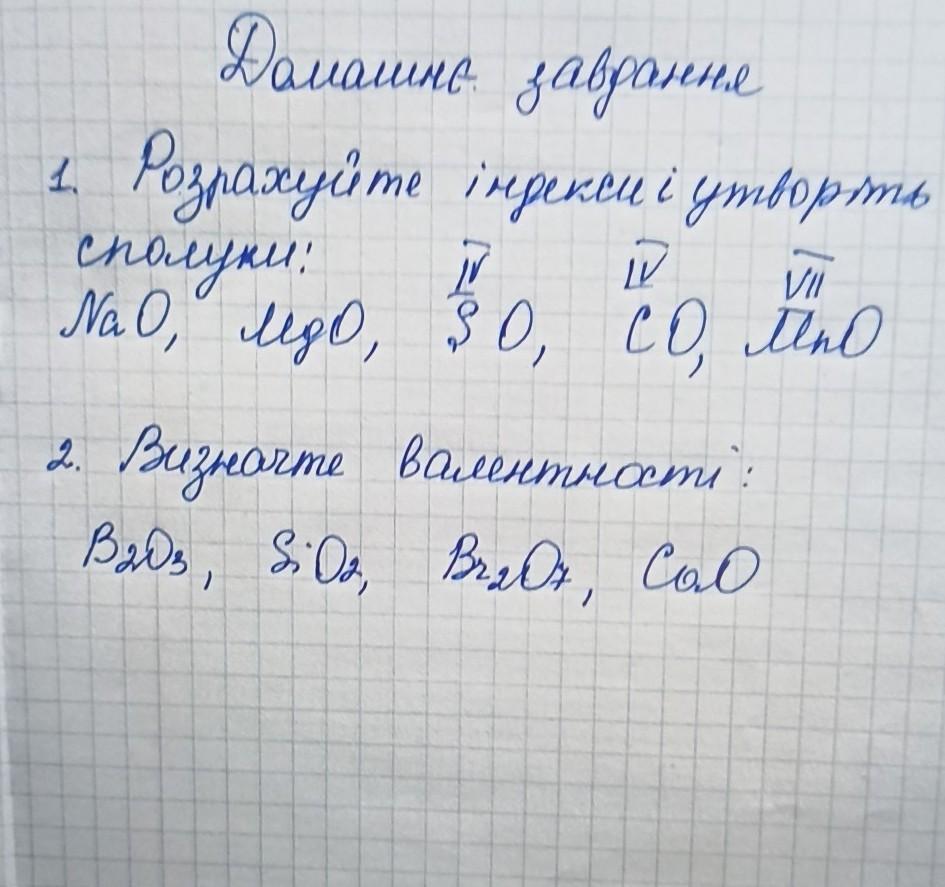 Домашнє завдання
1. Розрахуйте індекси і утворіть
сполуки:
IV IV VII
NaO, MgO, SO, CO, MnO
2. Визначте валентності:
B2O3, SiO2, Br2O7, CaO